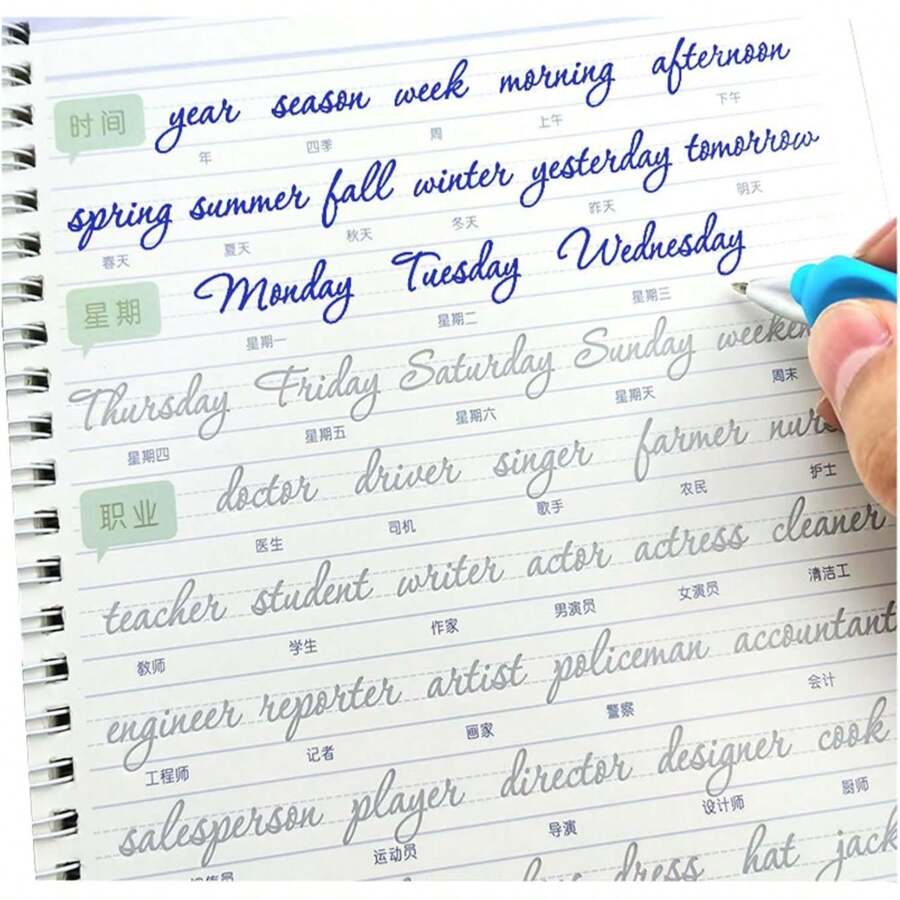 时间 year season week morning afternoon
年 四季 周 上午 下午
spring summer fall winter yesterday tomorrow
春天 夏天 秋天 冬天 昨天 明天
星期 Monday Tuesday Wednesday
星期一 星期二 星期三
Thursday Friday Saturday Sunday
星期四 星期五 星期六 星期天 周末
职业 doctor driver singer farmer
医生 司机 歌手 农民 护士
teacher student writer actor actress cleaner
教师 学生 作家 男演员 女演员 清洁工
engineer reporter artist policeman accountant
工程师 记者 画家 警察 会计
salesperson player director designer cook
运动员 导演 设计师 厨师
dress hat